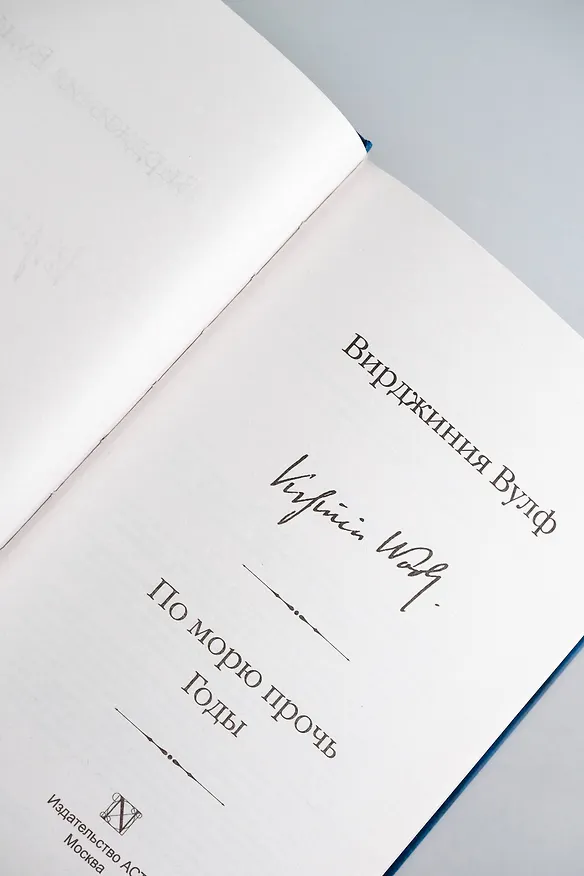 Вирджиния Вулф
Virginia Woolf.
По морю прочь
Годы
Издательство АСТ
Москва